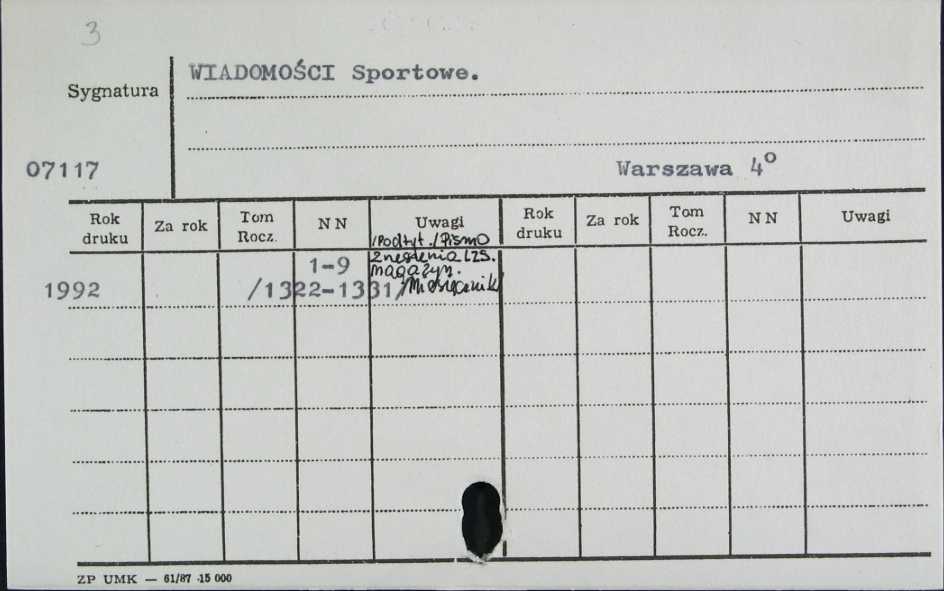 3
WIADOMOŚCI Sportowe.
Sygnatura
07117
Warszawa 4°
Rok druku Za rok Tom Rocz. N N Uwagi Rok druku Za rok Tom Rocz. N N Uwagi
/Podtyt./Pismo
Zrzeszenia LZS.
1-9 magazyn.
1992 /1322-1331/ Miesięcznik
ZP UMK — 61/87 -15 000